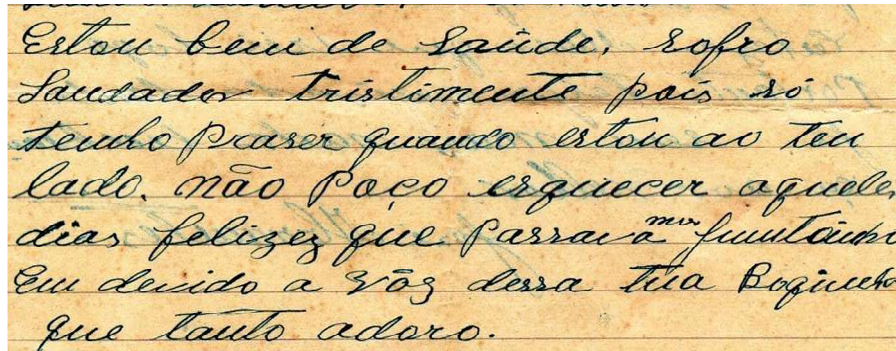 Estou bem de Saúde, sofro
Saudader tristimente pois só
tenho Praser quando estou ao teu
lado. não Poço esquecer aqueles
dias felizez que Passavamos
Em devido a vôz dessa tua
que tanto adoro.